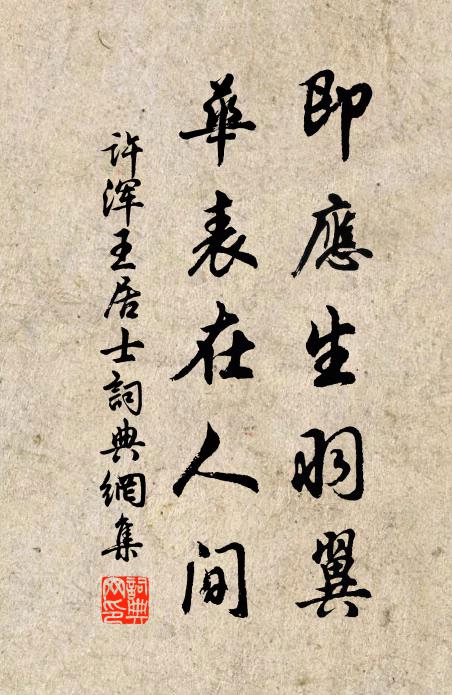 即應生羽翼
華表在人間
許渾王居士詞典網集
詞典网印